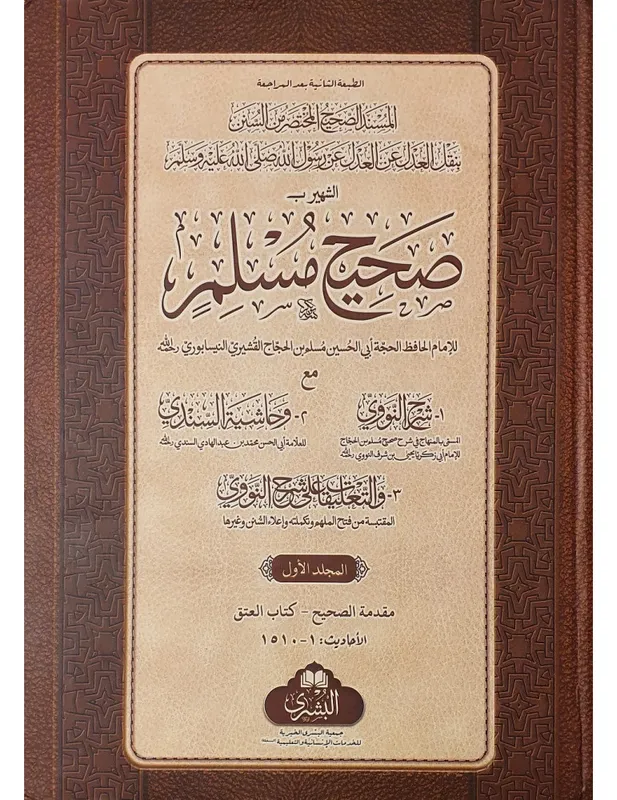 الطبعة الثانية بعد المراجعة
المسند الصحيح المختصر من السنن
بنقل العدل عن العدل عن رسول الله صلى الله عليه وسلم
الشهير ب
صَحِيح مُسْلِمٍ
للإمام الحافظ الحجة أبي الحسين مسلم بن الحجاج القشيري النيسابوري رحمه الله
مع
١- شرح النووي
المسمى بالمنهاج في شرح صحيح مسلم بن الحجاج
للإمام أبي زكريا يحيى بن شرف النووي رحمه الله
٢- وحاشية السندي
للعلامة أبي الحسن محمد بن عبد الهادي السندي رحمه الله
٣- والتعليقات على شرح النووي
المقتبسة من فتح الملهم وتكملته وإعلاء السنن وغيرها
المجلد الأول
مقدمة الصحيح - كتاب العتق
الأحاديث: ١-١٥١٠
البشرى
جمعية البشرى الخيرية
للخدمات الإنسانية والتعليمية